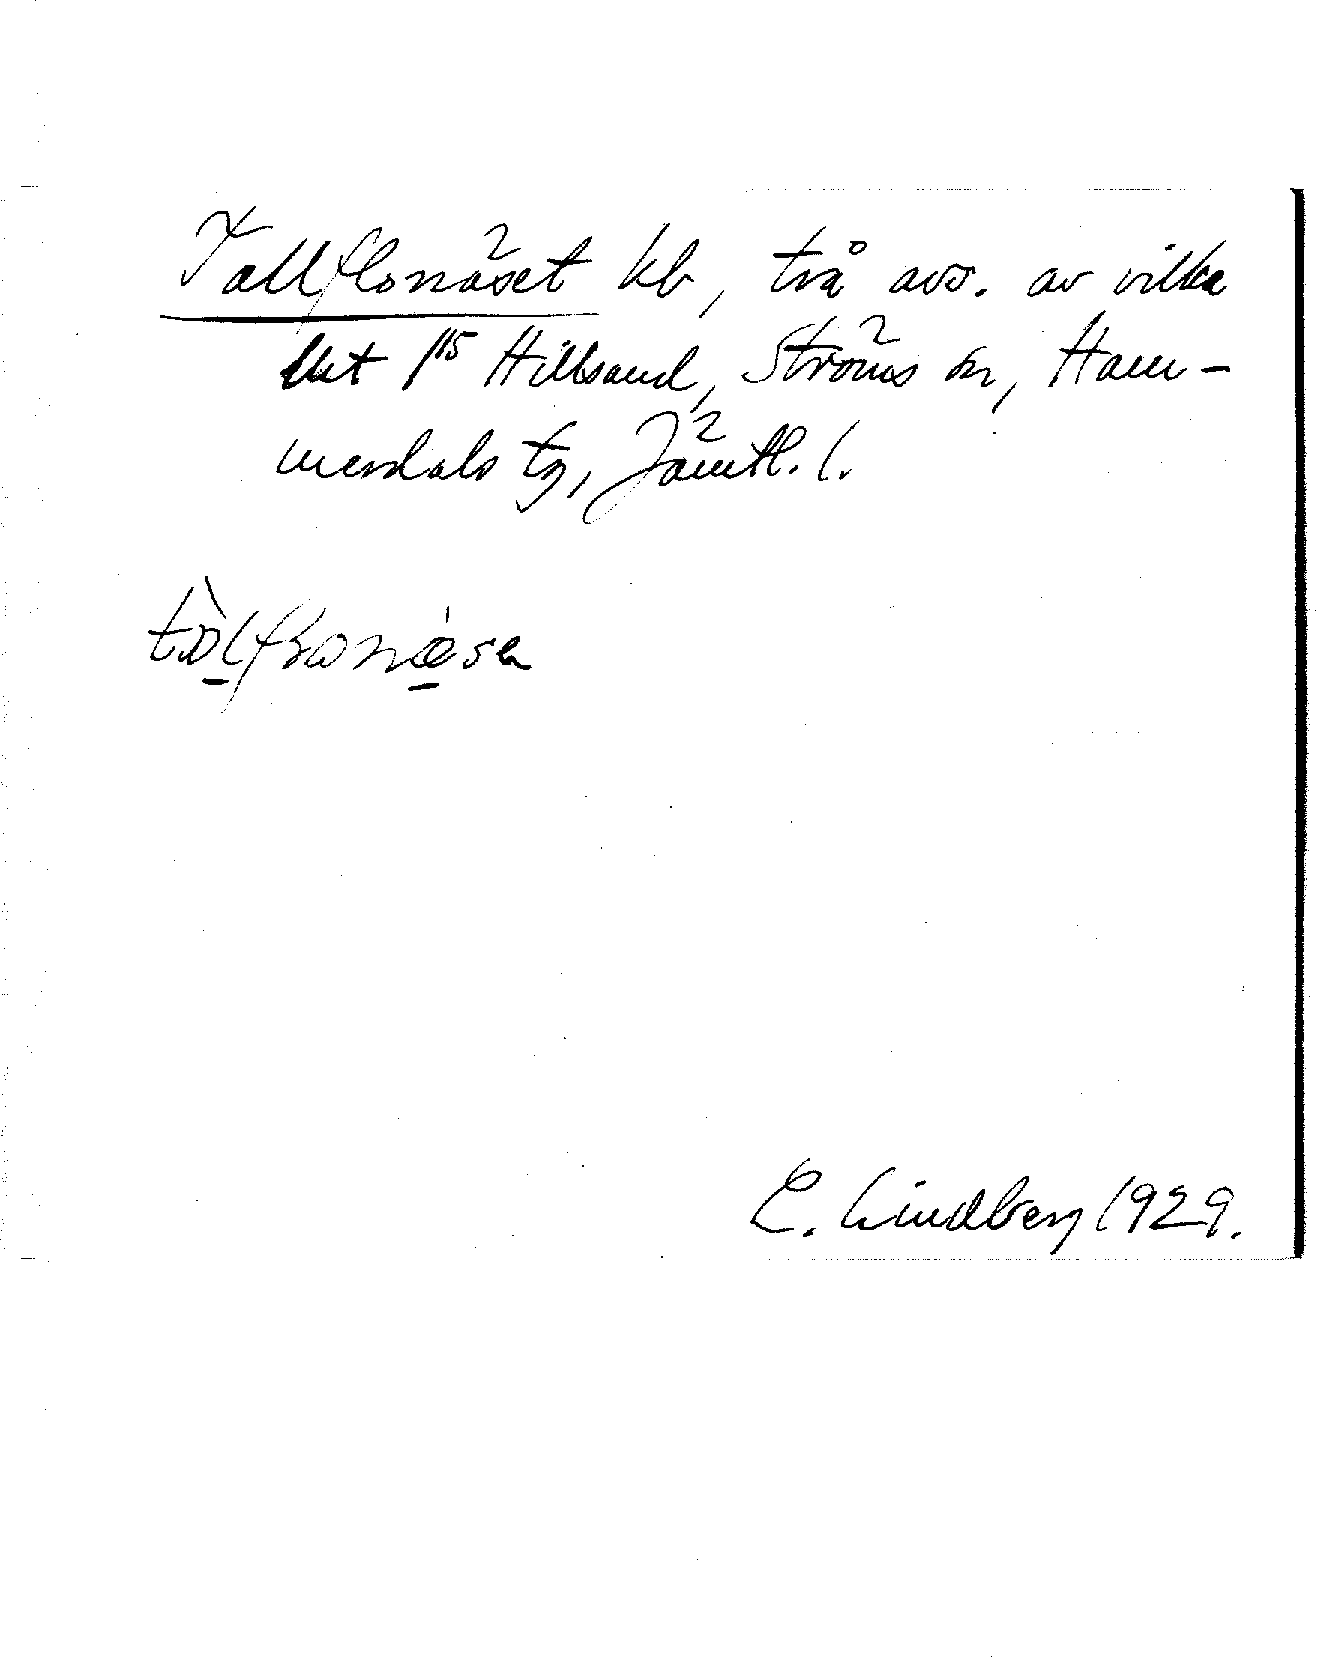 Tallflonäset kb, två avs. av vilka
det 1¹⁵ Hillsand, Ströms sn, Ham-
merdals tg, Jämtl. l.
E. Lindberg 1929.